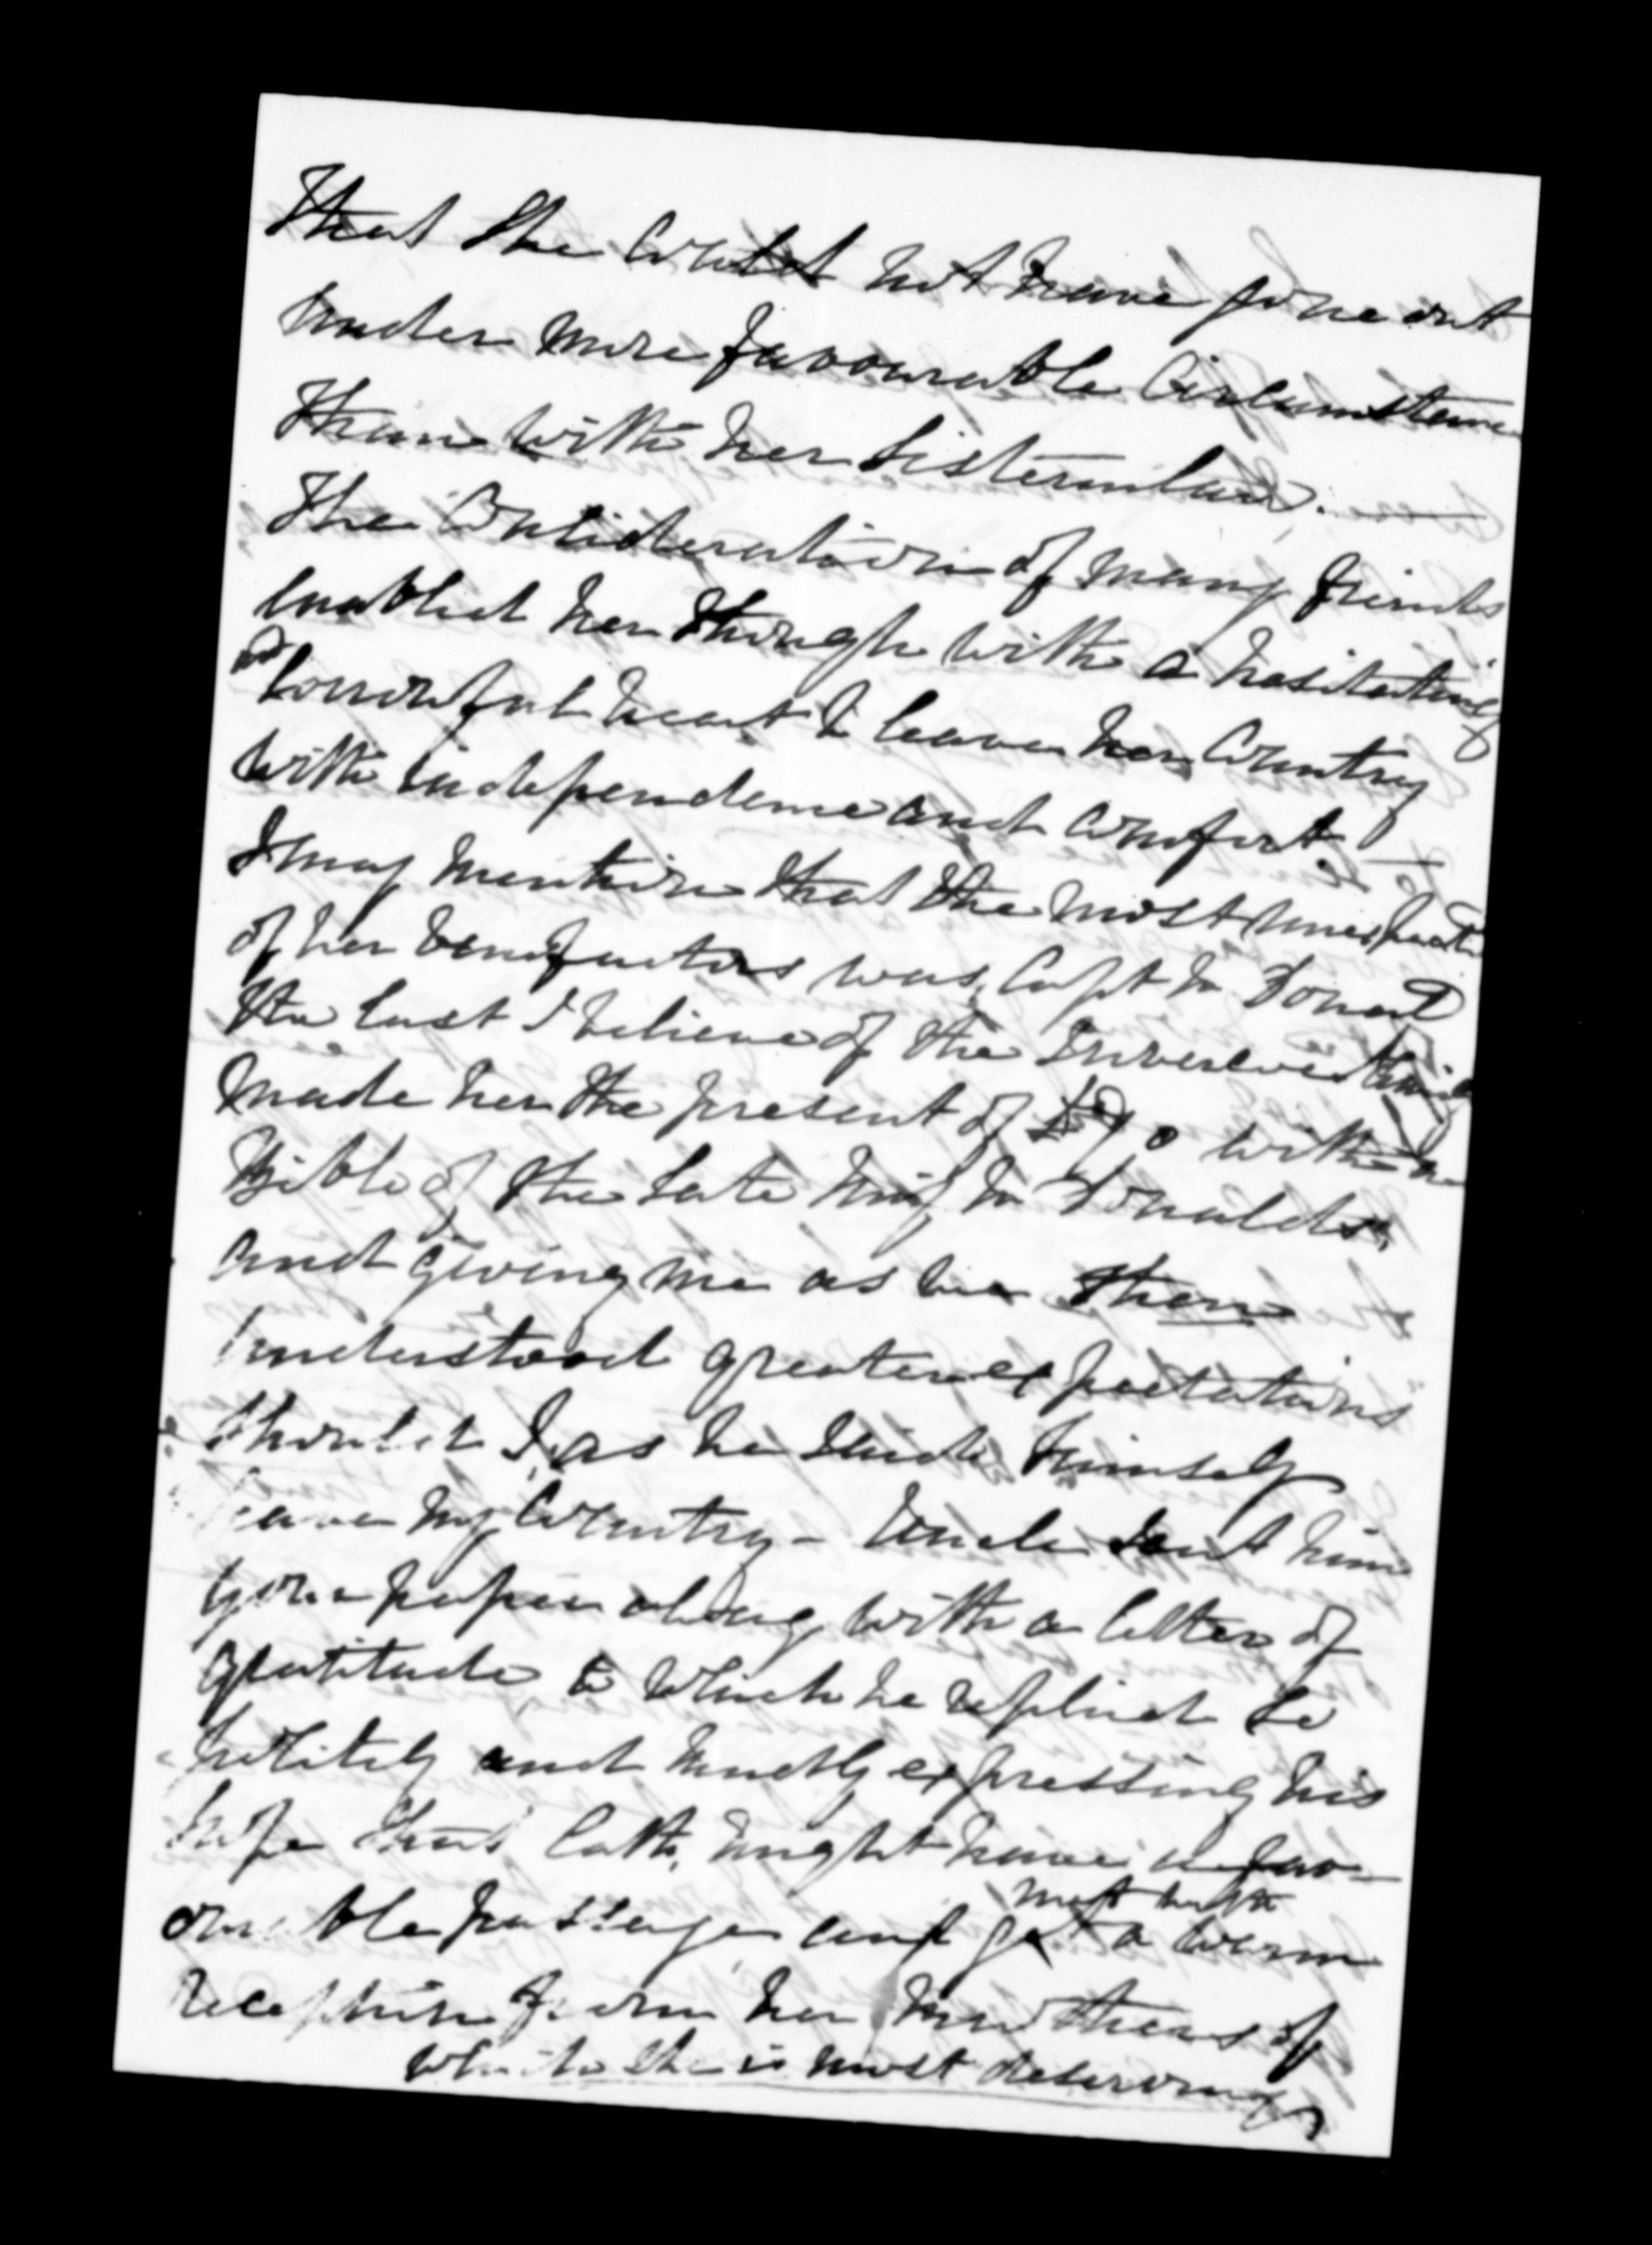 That she could not have gone out
under more favourable Circumstances
than with her Sisterinlaw. —
The Consideration of many friends
enabled her though with a hesitating
and sorrowful heart to leave her Country
with independence and comfort —
I may mention that the most unexpected
of her benefactors was Capt Mc Donald
the last I believe of the family
made her the present of with a
Bible of the late Miss Mc Donalds,
and giving me as we then
understood greater expectations
should I, as he said himself
leave my Country - Uncle sent him
your paper along with a letter of
gratitude to which he replied so
politely and kindly expressing his
hope that Cath. might have a fav-
ourable passage and get meet with a warm
reception from her brothers of
which she is most deserving